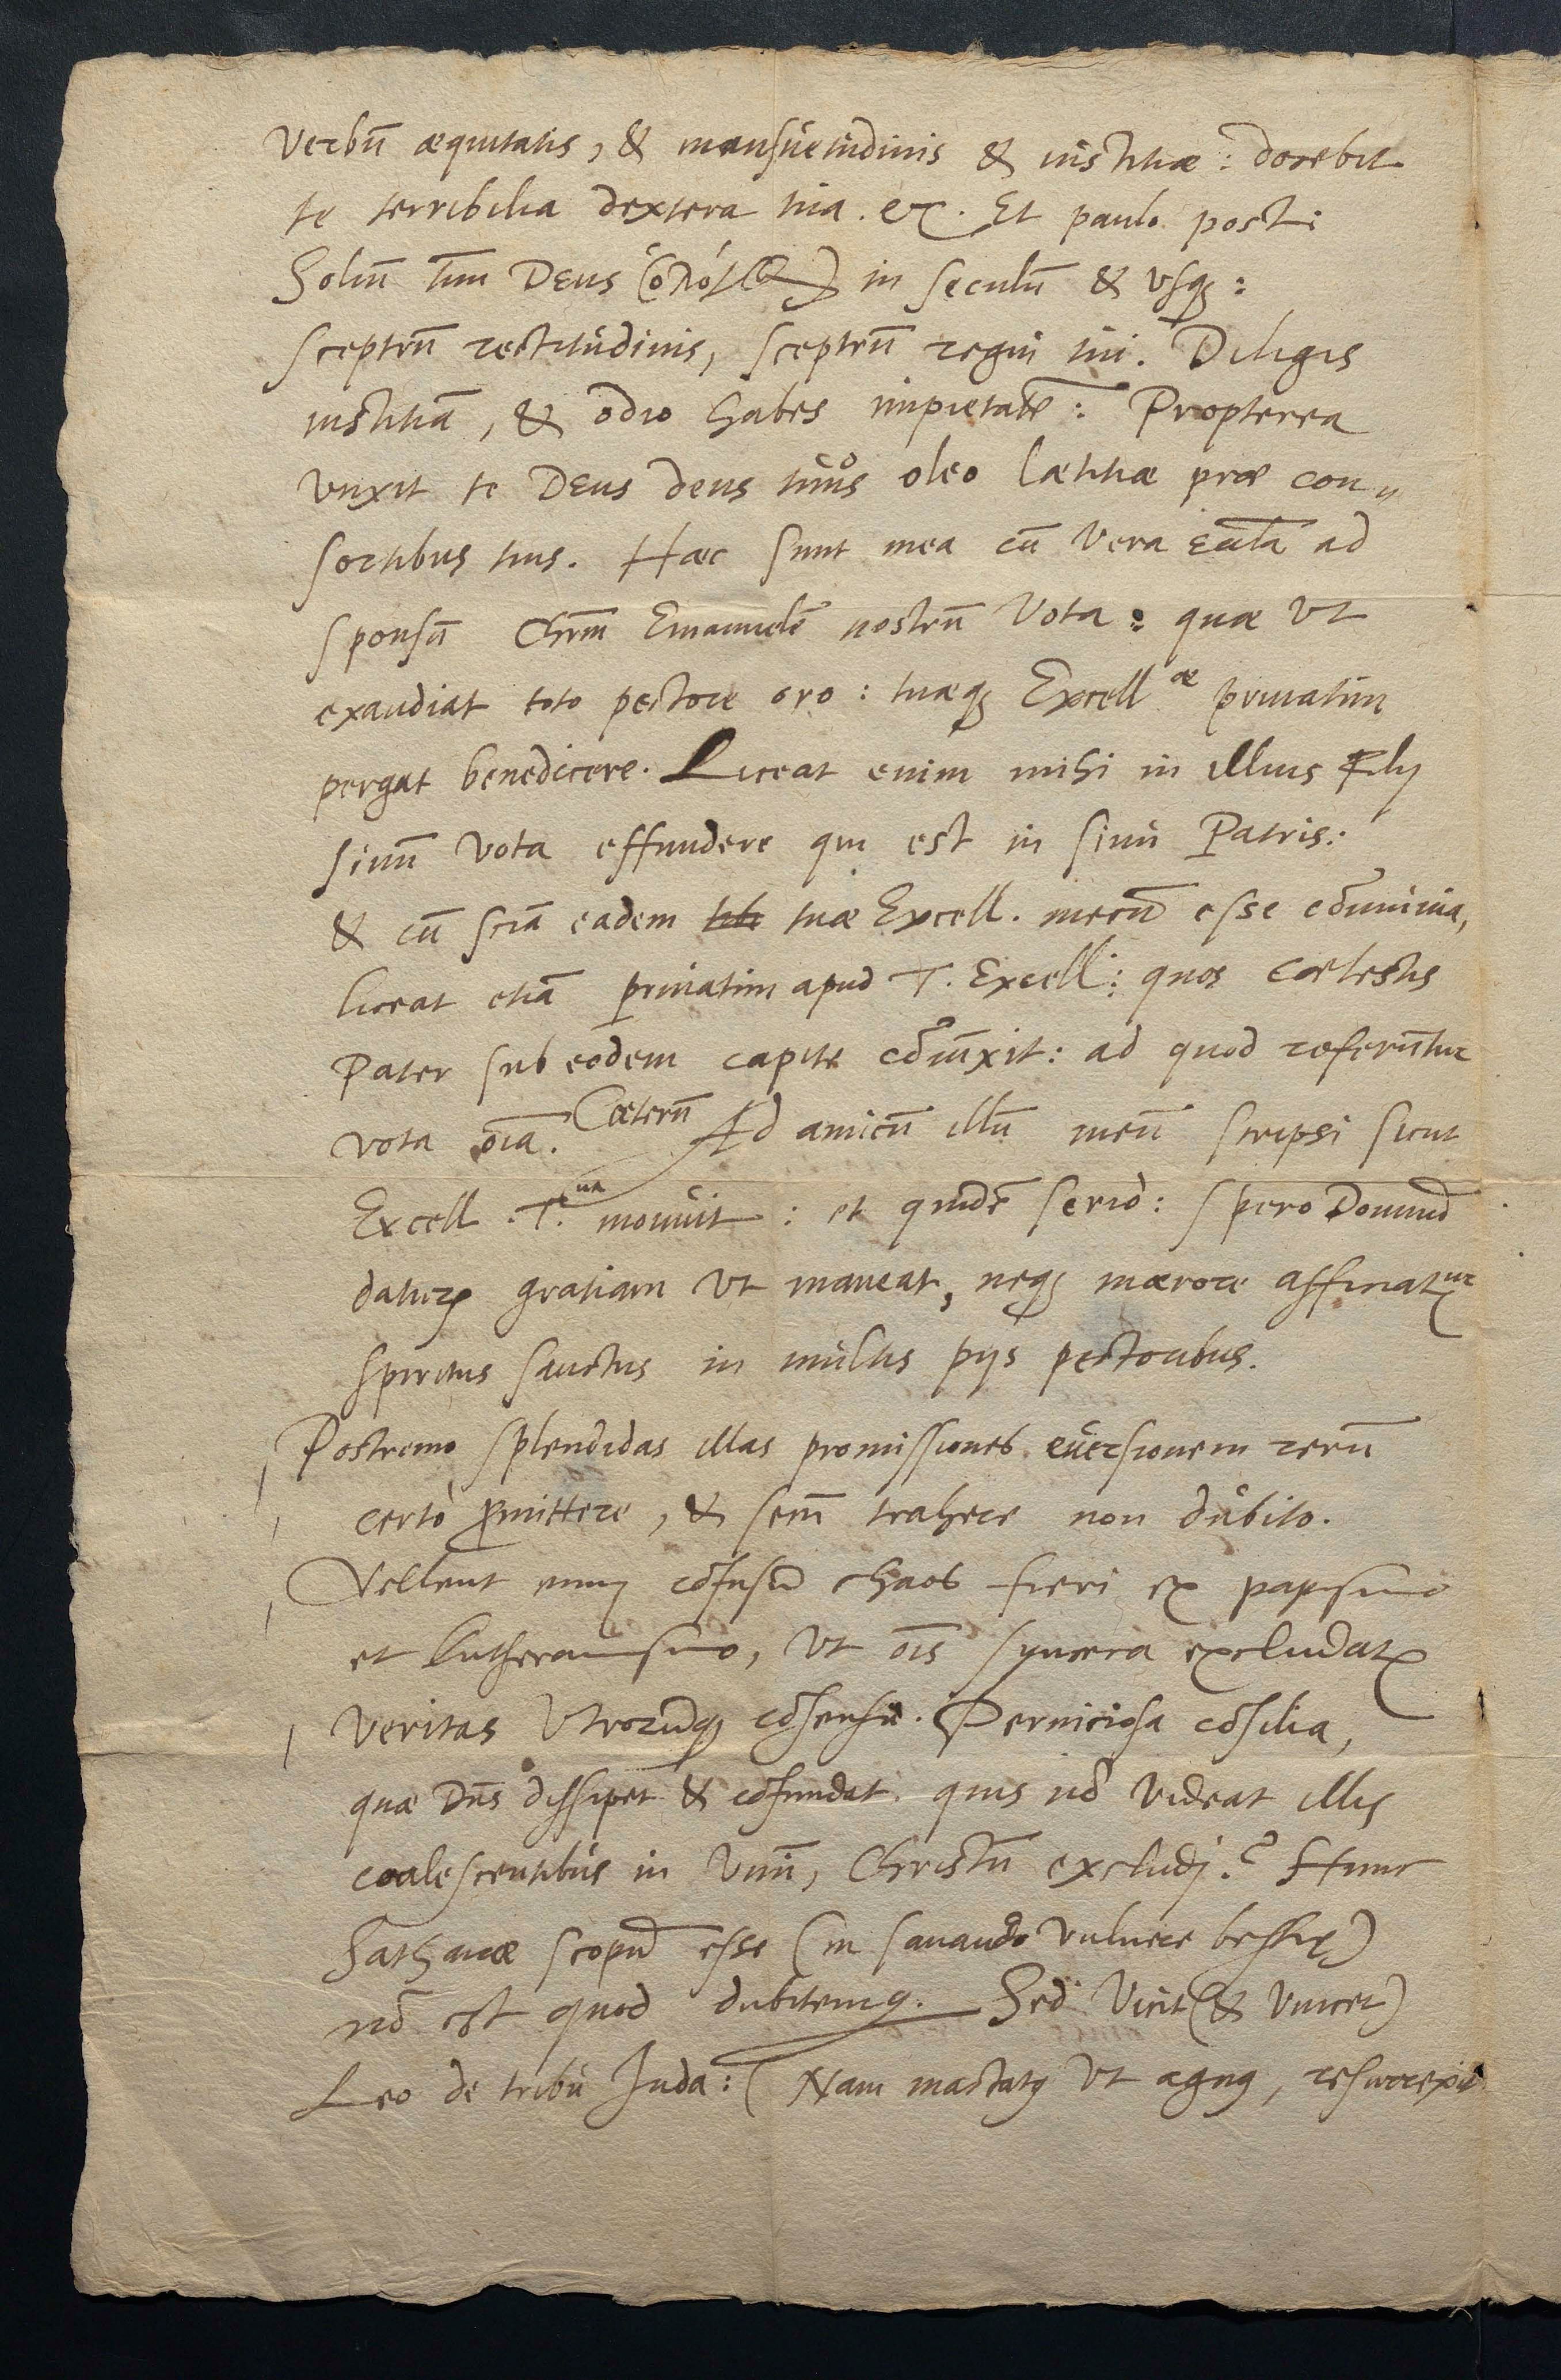 Verbū æquitatis, & mansuetudinis & iustitiæ: docebit
te terribilia dextera tua. &c. Et paulo post:
Soliū tuū Deus (ὁ λόγος) in seculū & usq̨:
sceptrū rectitudinis, sceptrū regni tui. Diligis
iustitiā, & odio habes impietatē: Propterea
unxit te Deus deus tuus oleo lætitiæ præ con„
sortibus tuis. Hæc sunt mea cū vera eccl̄ia ad
sponsū Chr̄m Emanuelē nostrū vota: quæ ut
exaudiat toto pectore oro: tuæq̨ Excellæ privatim
pergat benedicere. Liceat enim mihi in illius Filij
sinū vota effundere qui est in sinu Patris:
& cū sciā eadem tuæ Excell. mecū esse cōmunia,
liceat etiā privatim apud T. Excell: quos cœlestis
Pater sub eodem capite cōiūxit: ad quod referūtur
vota oīa. Cæterū Ad amicū illū meū scripsi sicut
Excell. T.ua monuit: et quidē serio: spero Dominū
daturū gratiam ut maneat, neq̨ mærore afficiatur
spiritus sanctus in multis pijs pectoribus.
Postremo splendidas illas promissiones eversionem rerū
certò p̄mittere, & secū trahere non dubito.
Vellent enim cōfusū chaos fieri ex papismo
et Lutheranismo, ut oīs syncera excludatur
veritas utrorumq̨ cōsensu. Perniciosa cōsilia,
quæ Dn̄s dissipet & cōfundat. quis nō videat illis
coalescentibus in unū, Christū excludj? Hunc
Sathanæ scopū esse (in sanando vulnere bestię)
nō est quod dubitemus. Sed vicit (& vincet)
Leo de tribu Juda: (Nam mactatus ut agnus, resurrexit